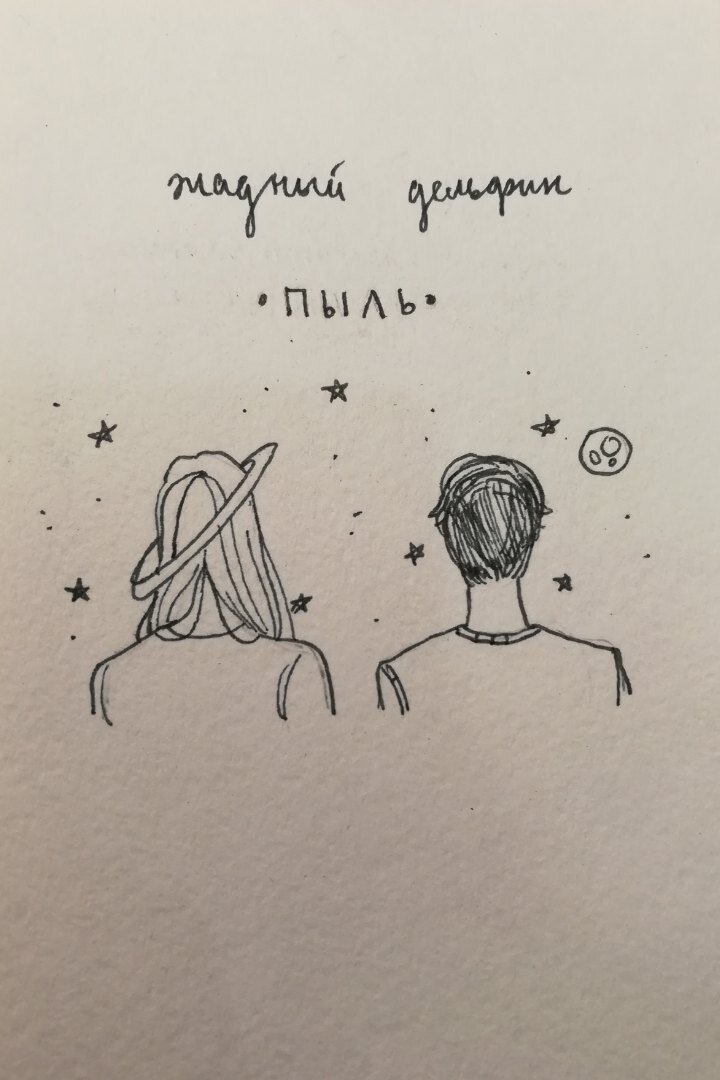 жадный дельфин
•ПЫЛЬ•